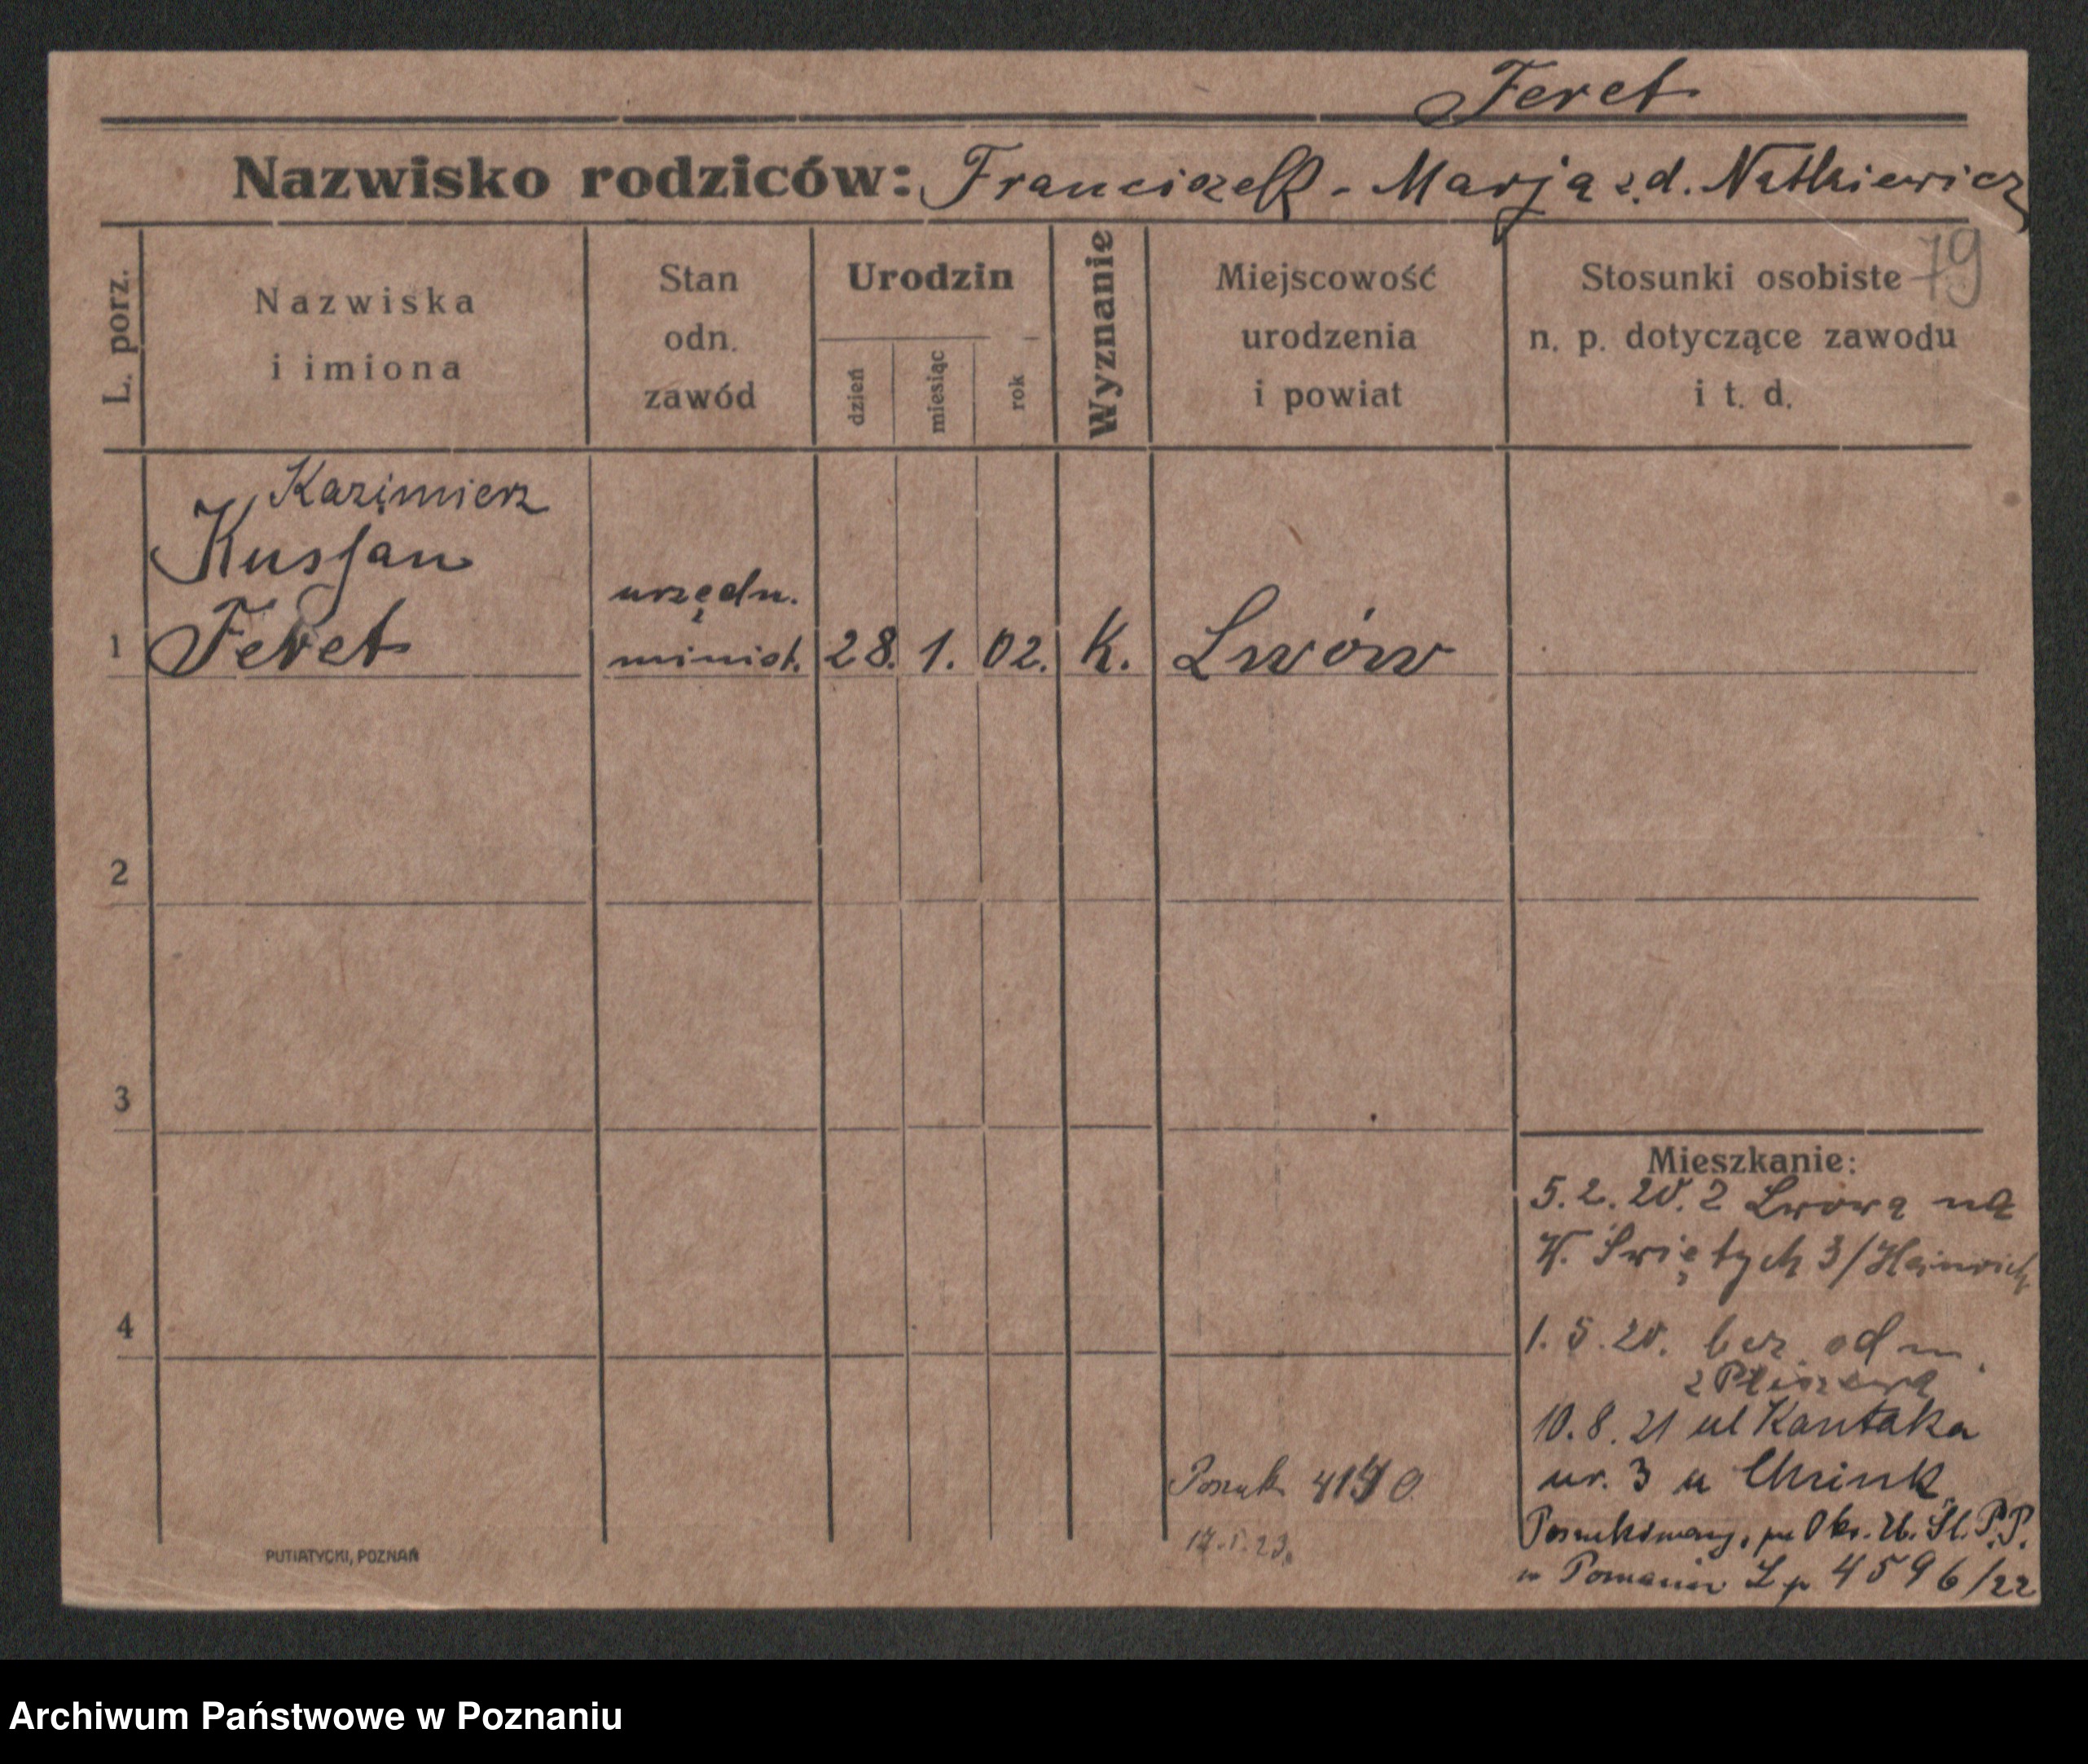 Feret
Nazwisko rodziców: Franciszek - Marja z d. Natkiewicz
79
L. porz.
Nazwiska
i imiona
Stan
odn.
zawód
Urodzin
dzień
miesiąc
rok
Wyznanie
Miejscowość
urodzenia
i powiat
Stosunki osobiste
n. p. dotyczące zawodu
i t. d.
Kazimierz
1 Feret
urzędn.
minist.
28. 1. 02. K. Lwów
2
3
4
Mieszkanie:
5. 2. 20. z Lwowa na
W. Świętych 3/Heinrich
1. 5. 20. bez odm.
10. 8. 21 ul Kantaka
nr. 3 u
Poszukiwany, Okr. P.P.
w Poznaniu L 4596/22
Poszuk
17. 1. 23.
PUTIATYCKI, POZNAŃ
Archiwum Państwowe w Poznaniu